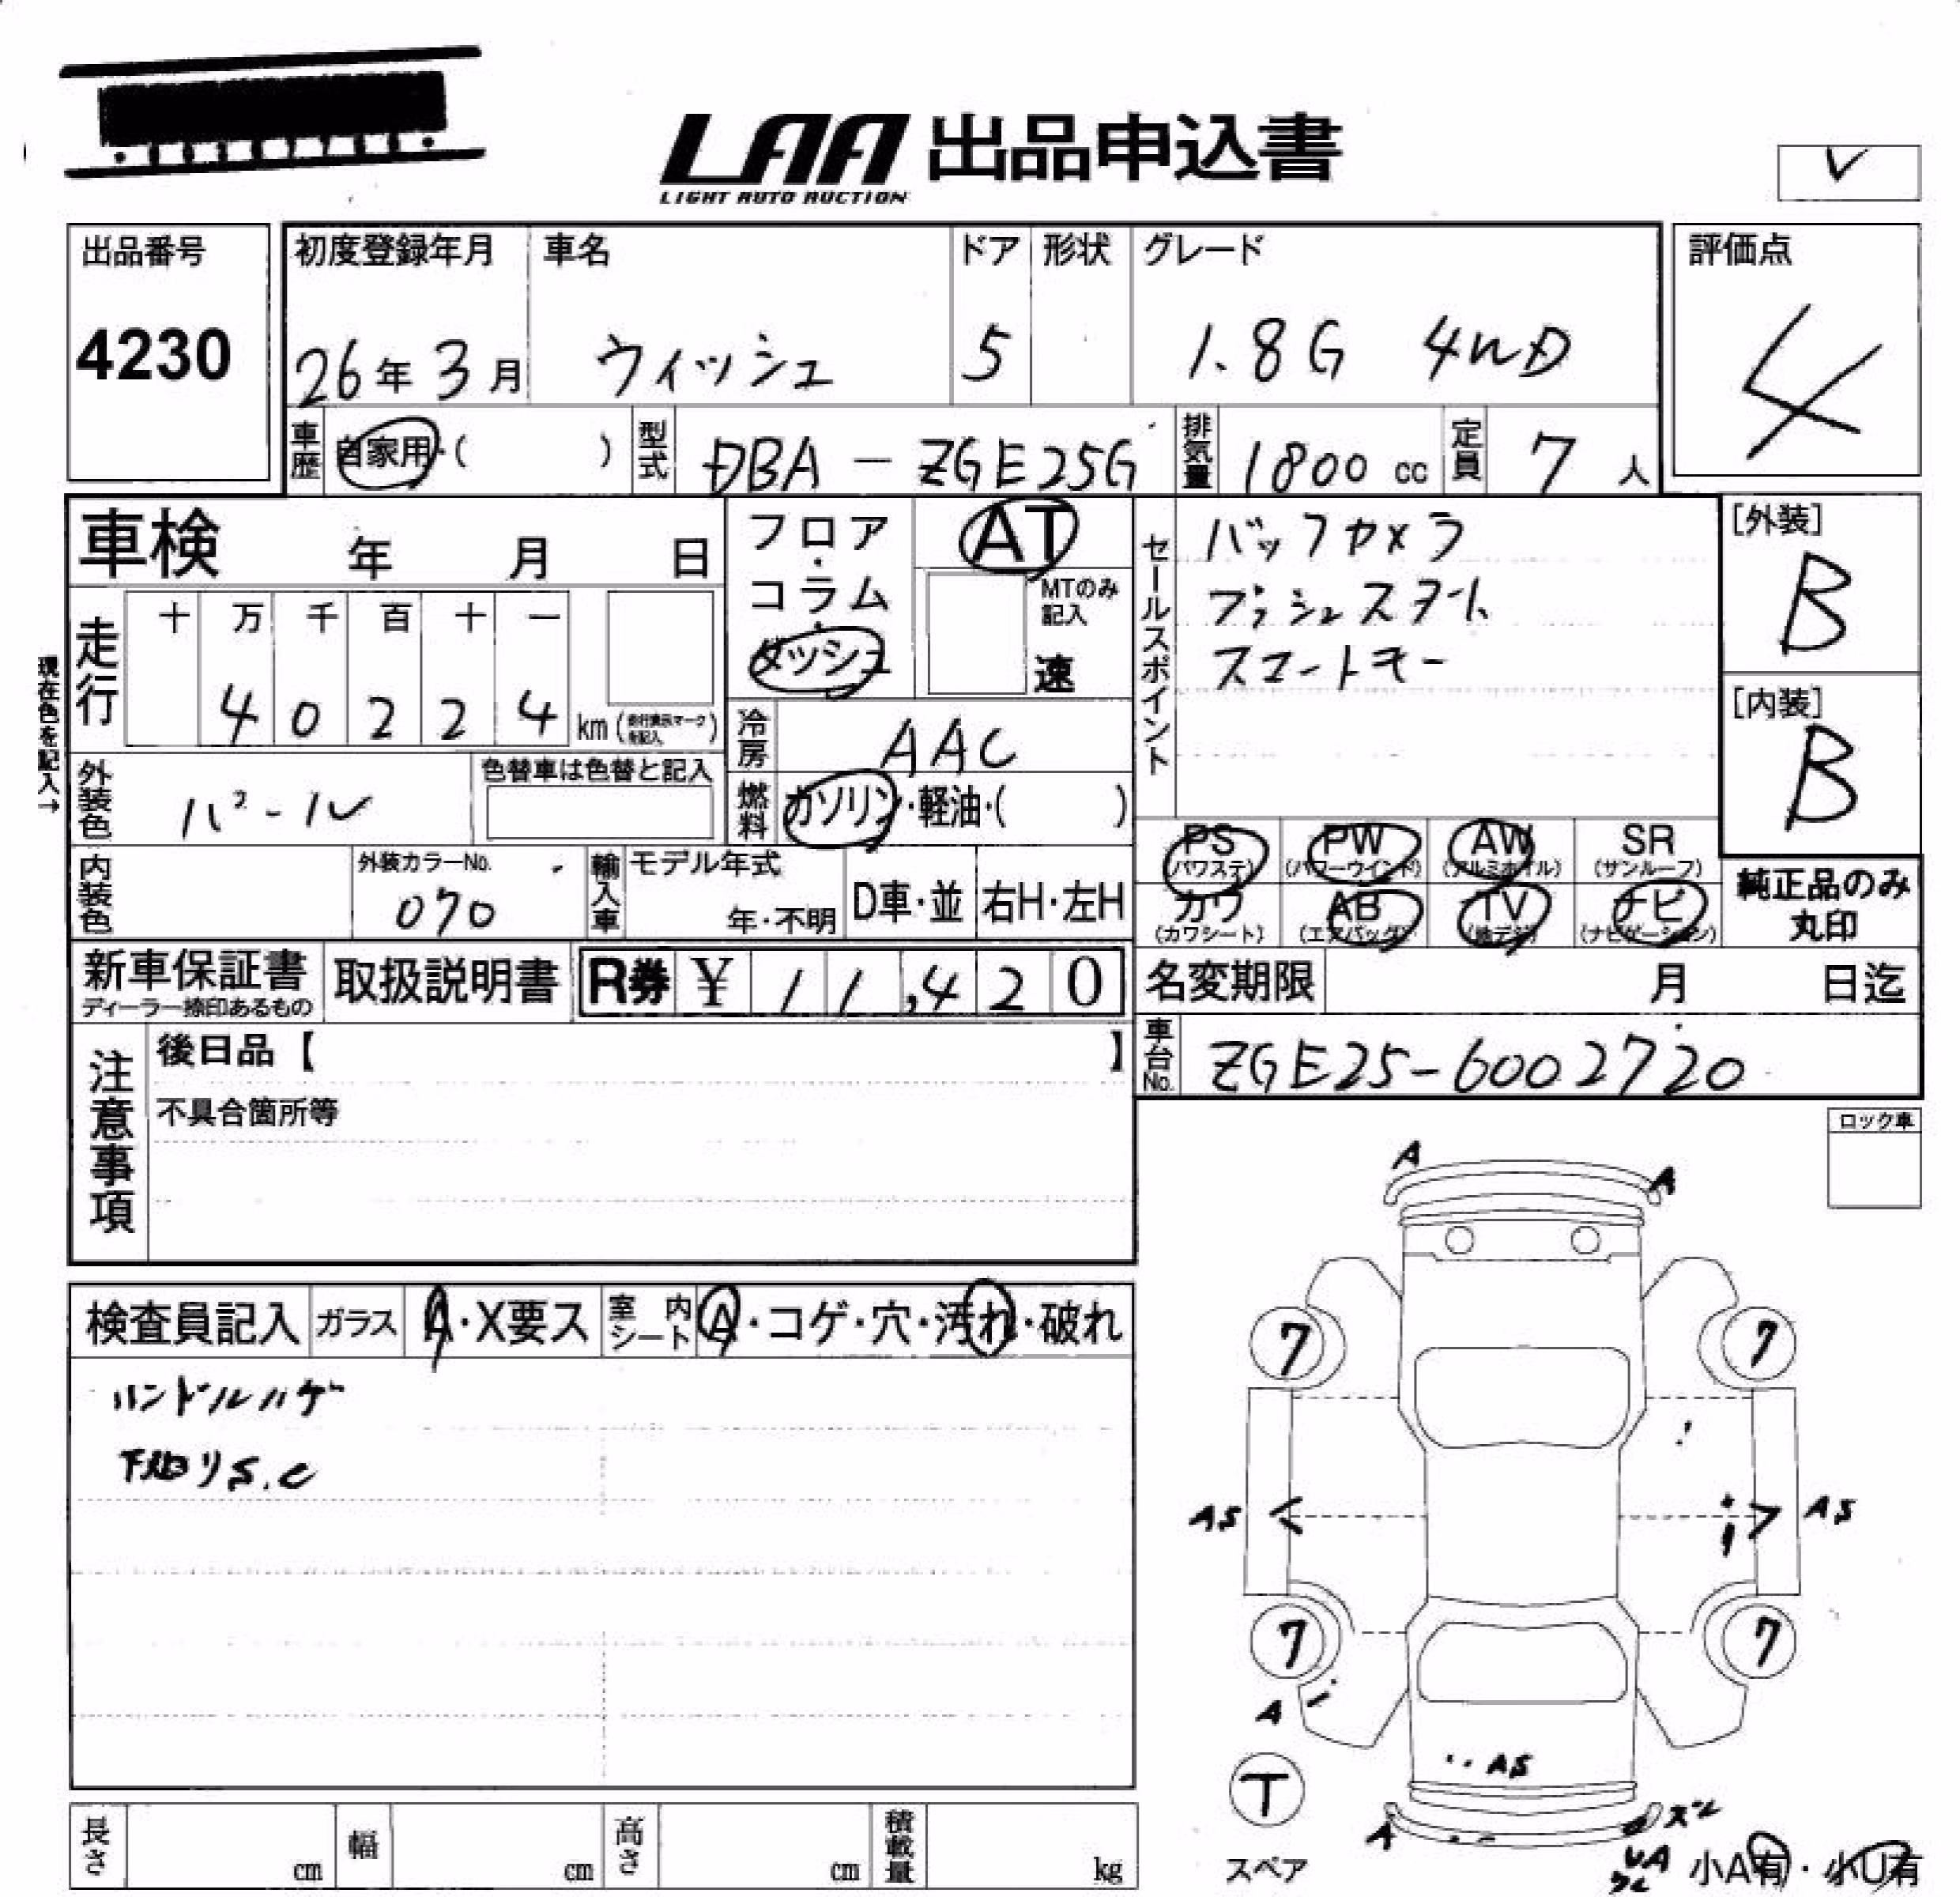 LAA 出品申込書
LIGHT AUTO AUCTION
出品番号
4230
初度登録年月 車名 ドア 形状 グレード
26年 3月 ウィッシュ 5 1.8G 4WD
評価点
4
車歴 自家用・( ) 型式 DBA-ZGE25G 排気量 1800 cc 定員 7 人
車検 年 月 日
フロア・コラム・ダッシュ
AT
MTのみ記入
速
セールスポイント
バックカメラ
プッシュスタート
スマートキー
[外装]
B
[内装]
B
現在色を記入→
走行 十 万 千 百 十 一
4 0 2 2 4 km (走行表示マークを記入)
冷房 AAC
燃料 ガソリン・軽油・( )
外装色 パール
色替車は色替と記入
内装色
外装カラーNo.
070
輸入車 モデル年式
年・不明 D車・並 右H・左H
PS (パワステ) PW (パワーウインド) AW (アルミホイル) SR (サンルーフ)
カワ (カワシート) AB (エアバッグ) TV (地デジ) ナビ (ナビゲーション)
純正品のみ丸印
新車保証書
ディーラー捺印あるもの
取扱説明書
R券 ¥ 11,420
名変期限 月 日迄
車台No. ZGE25-6002720
注意事項
後日品【 】
不具合箇所等
ロック車
検査員記入 ガラス A・X要ス 室内シート A・コゲ・穴・汚れ・破れ
ハンドルハゲ
下廻りS.C
A
A
7 7
AS AS
7 7
A
AS
T
スペア
A
スレ
UA
小A有・小U有
長さ cm 幅 cm 高さ cm 積載量 kg